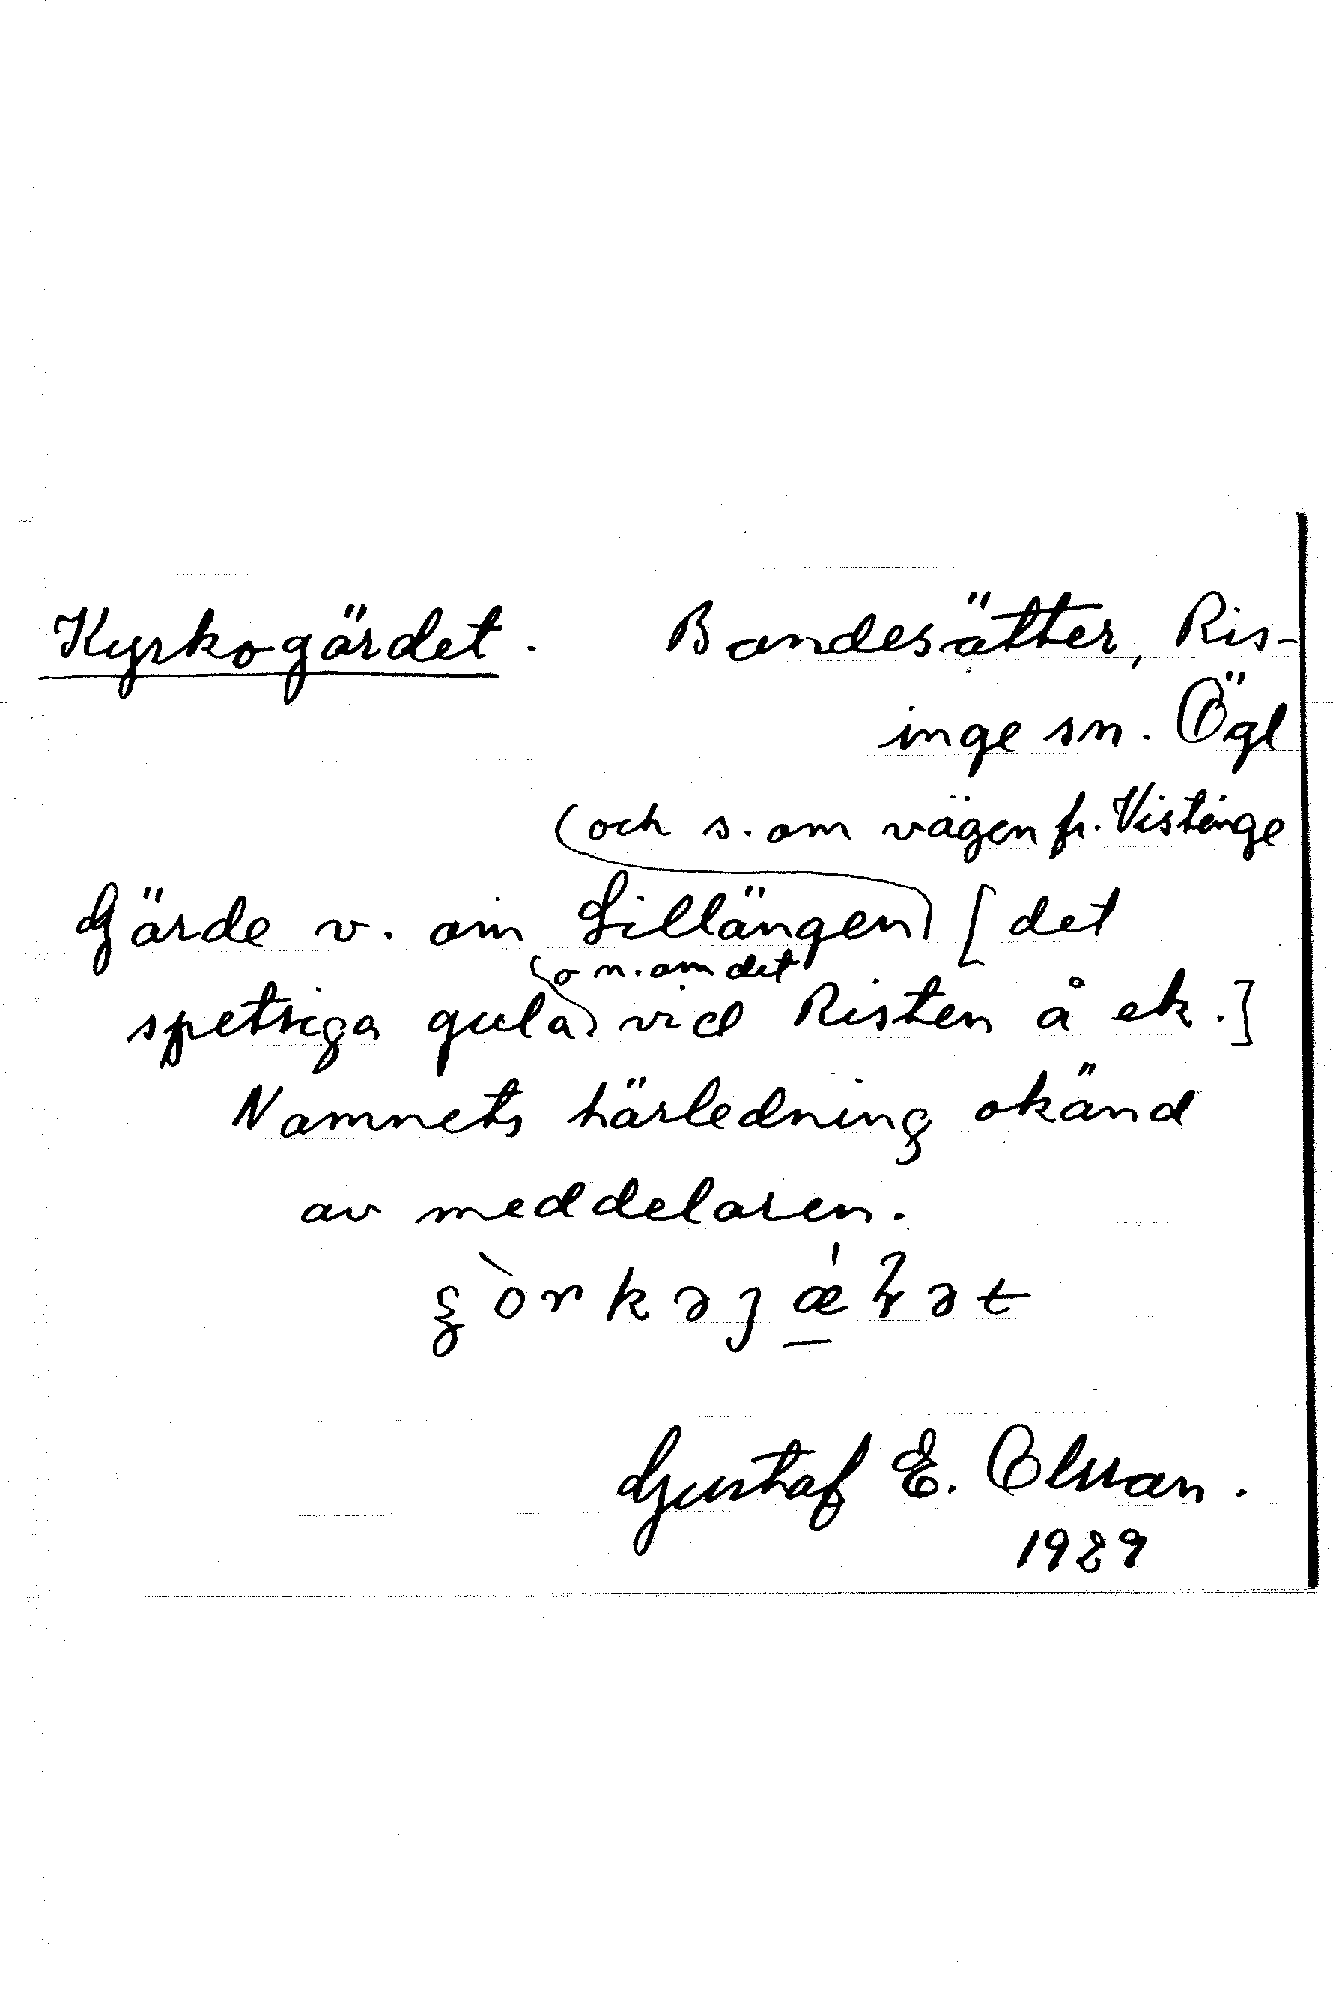 Kyrkogärdet. Bandesätter, Ris-
inge sn. Ögl
(och s. om vägen fr. Vistinge
Gärde v. om Lillängen) [det
(o n. om det
spetsiga gula) vid Risten å ek.]
Namnets härledning okänd
av meddelaren.
Gustaf E. Olsson.
1929